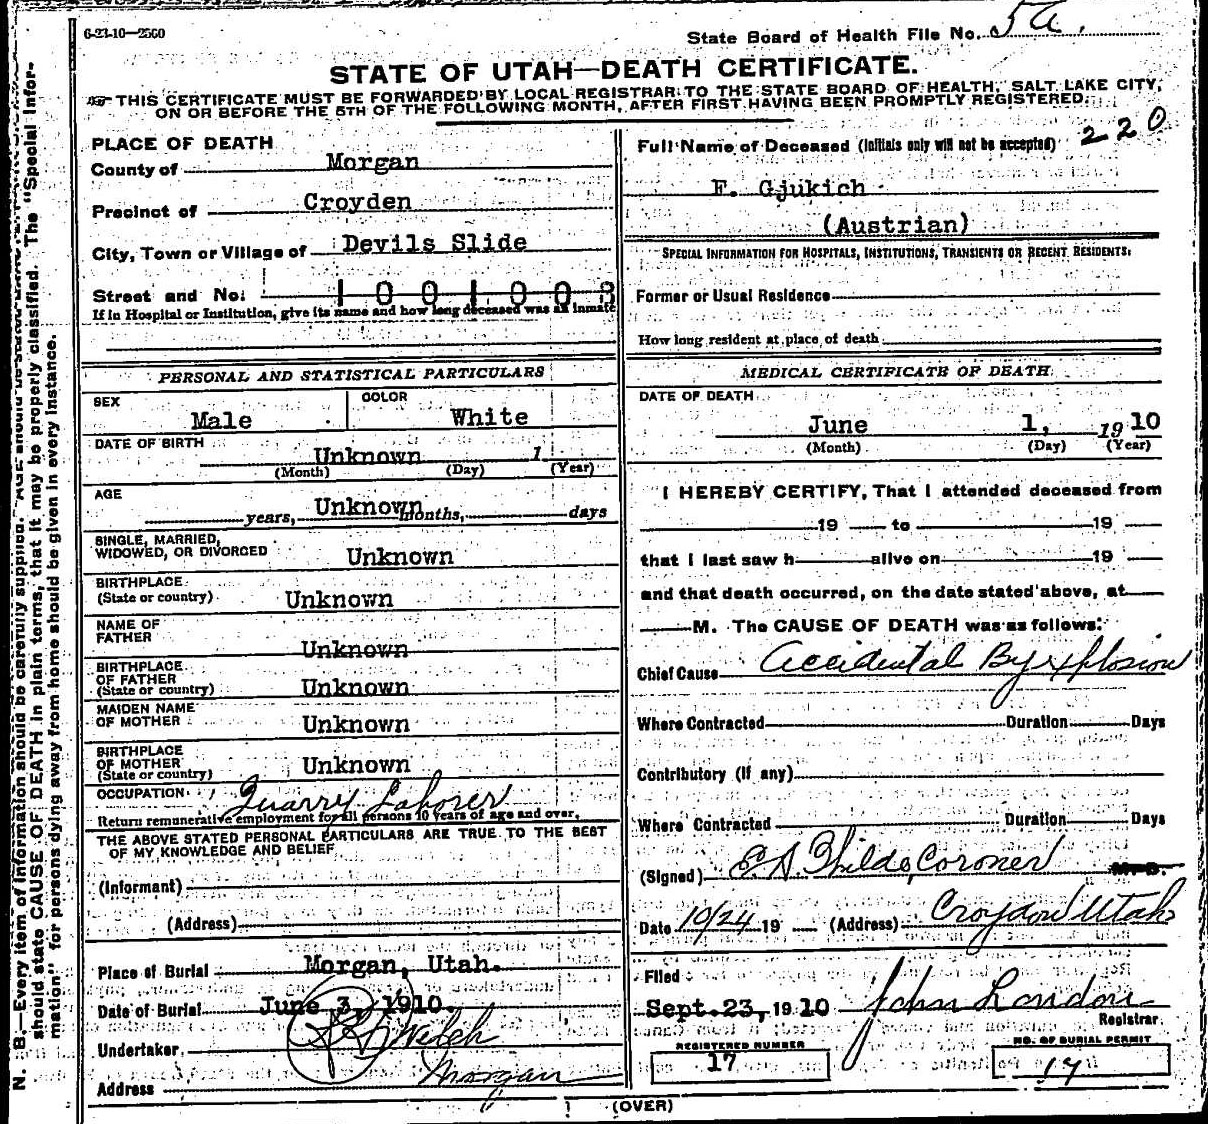 6-23-10—2500
State Board of Health File No. 5a.
STATE OF UTAH—DEATH CERTIFICATE.
THIS CERTIFICATE MUST BE FORWARDED BY LOCAL REGISTRAR TO THE STATE BOARD OF HEALTH, SALT LAKE CITY,
ON OR BEFORE THE 5TH OF THE FOLLOWING MONTH, AFTER FIRST HAVING BEEN PROMPTLY REGISTERED.
PLACE OF DEATH
County of Morgan
Precinct of Croyden
City, Town or Village of Devils Slide
Street and No. 1001003
If in Hospital or Institution, give its name and how long deceased was an inmate
PERSONAL AND STATISTICAL PARTICULARS
SEX Male
COLOR White
DATE OF BIRTH
Unknown 1
(Month) (Day) (Year)
AGE
Unknown
years, months, days
SINGLE, MARRIED,
WIDOWED, OR DIVORCED Unknown
BIRTHPLACE
(State or country) Unknown
NAME OF
FATHER Unknown
BIRTHPLACE
OF FATHER
(State or country) Unknown
MAIDEN NAME
OF MOTHER Unknown
BIRTHPLACE
OF MOTHER
(State or country) Unknown
OCCUPATION Quarry Laborer
Return remunerative employment for all persons 10 years of age and over.
THE ABOVE STATED PERSONAL PARTICULARS ARE TRUE TO THE BEST
OF MY KNOWLEDGE AND BELIEF
(Informant)
(Address)
Place of Burial Morgan, Utah.
Date of Burial June 3, 1910.
Undertaker Welch
Address Morgan
220
Full Name of Deceased (Initials only will not be accepted)
F. Gjukich
(Austrian)
SPECIAL INFORMATION FOR HOSPITALS, INSTITUTIONS, TRANSIENTS OR RECENT RESIDENTS:
Former or Usual Residence
How long resident at place of death
MEDICAL CERTIFICATE OF DEATH
DATE OF DEATH
June 1, 1910
(Month) (Day) (Year)
I HEREBY CERTIFY, That I attended deceased from
19 to 19
that I last saw h alive on 19
and that death occurred, on the date stated above, at
M. The CAUSE OF DEATH was as follows:
Chief Cause Accidental By explosion
Where Contracted Duration Days
Contributory (if any)
Where Contracted Duration Days
(Signed) Coroner M. D.
Date 10/24 19 (Address) Croydon Utah
Filed
Sept. 23, 1910 John London
Registrar
REGISTERED NUMBER
17
NO. OF BURIAL PERMIT
17
(OVER)
N. B.—Every item of information should be carefully supplied. AGE should be stated EXACTLY.
should state CAUSE OF DEATH in plain terms, that it may be properly classified. The "Special Infor-
mation" for persons dying away from home should be given in every instance.